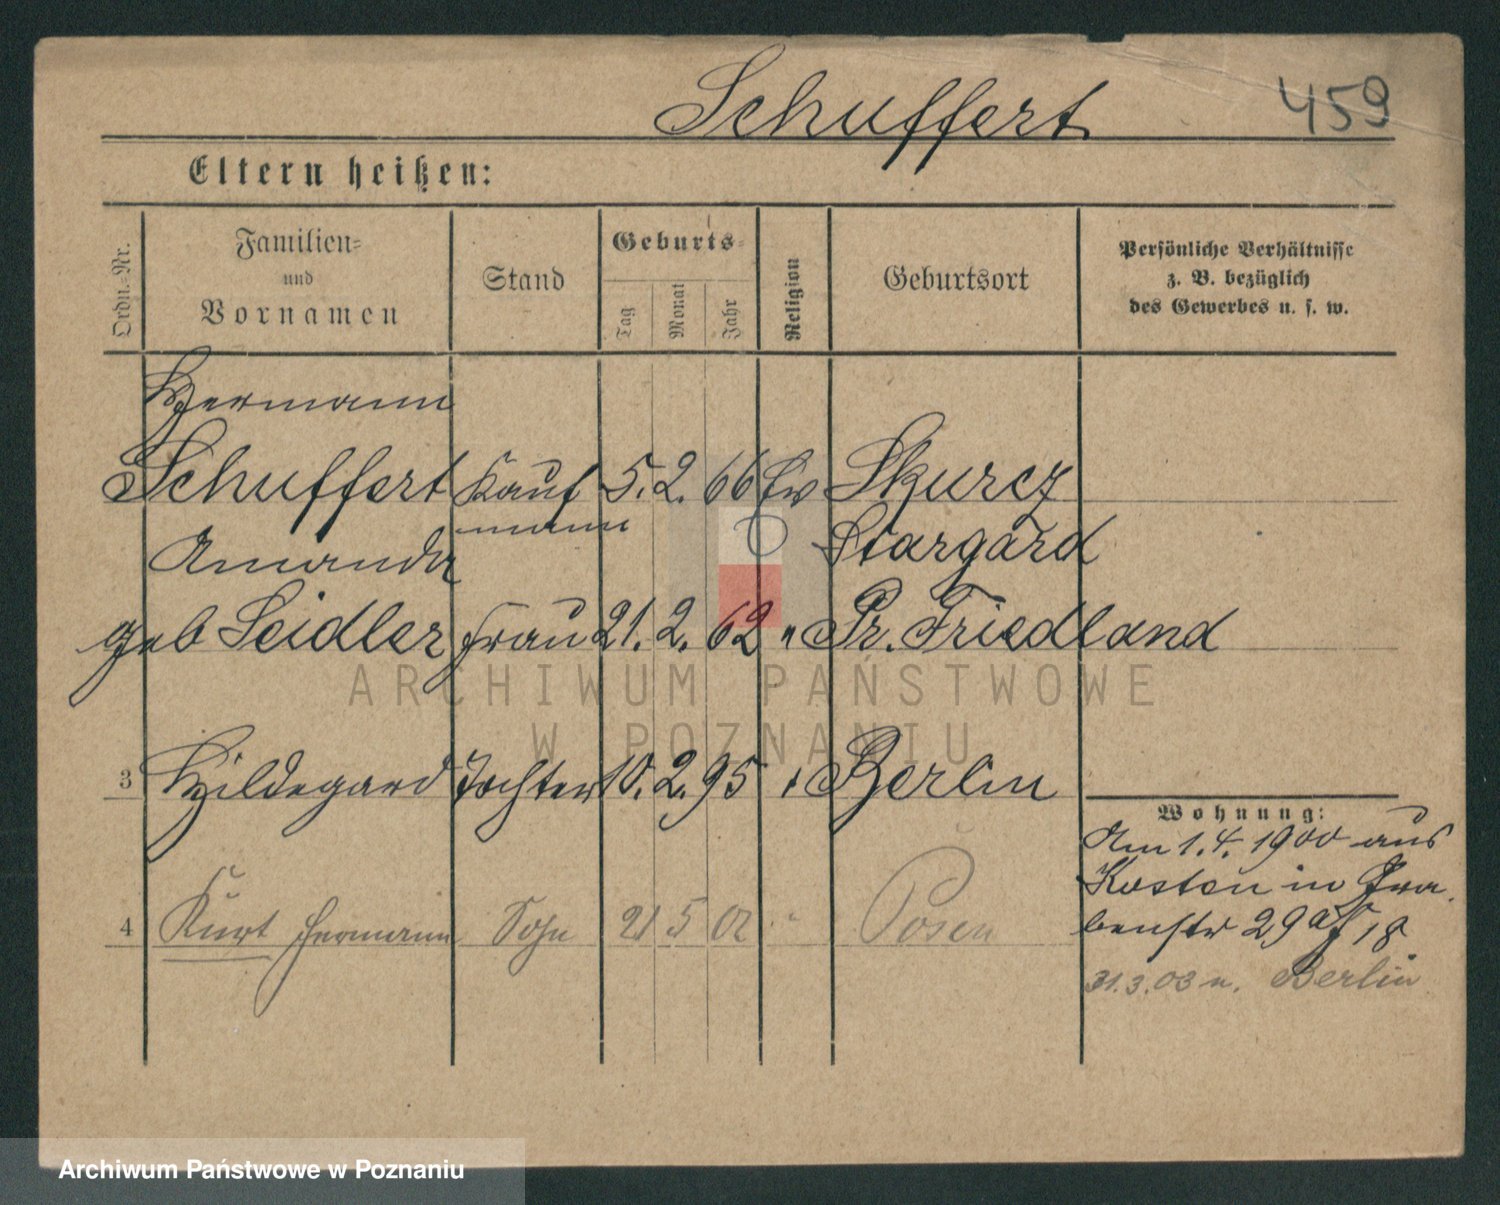 Schuffert 459
Eltern heißen:
Ordn.-Nr.
Familien-
und
Vornamen
Stand
Geburts-
Tag
Monat
Jahr
Religion
Geburtsort
Persönliche Verhältnisse
z. B. bezüglich
des Gewerbes u. s. w.
Hermann
Schuffert Kauf 5. 2. 66 Ev Skurcz
mann Stargard
Amanda
geb Seidler Frau 21. 2. 62 " Pr. Friedland
ARCHIWUM PAŃSTWOWE
W POZNANIU
3 Hildegard Tochter 10. 2. 95 " Berlin
Wohnung:
Am 1. 4. 1900 aus
Kosten in Gra
4 Kurt Hermann Sohn 21 5 02 " Posen
benstr 29 a/f 18
31.3.03 n. Berlin
Archiwum Państwowe w Poznaniu